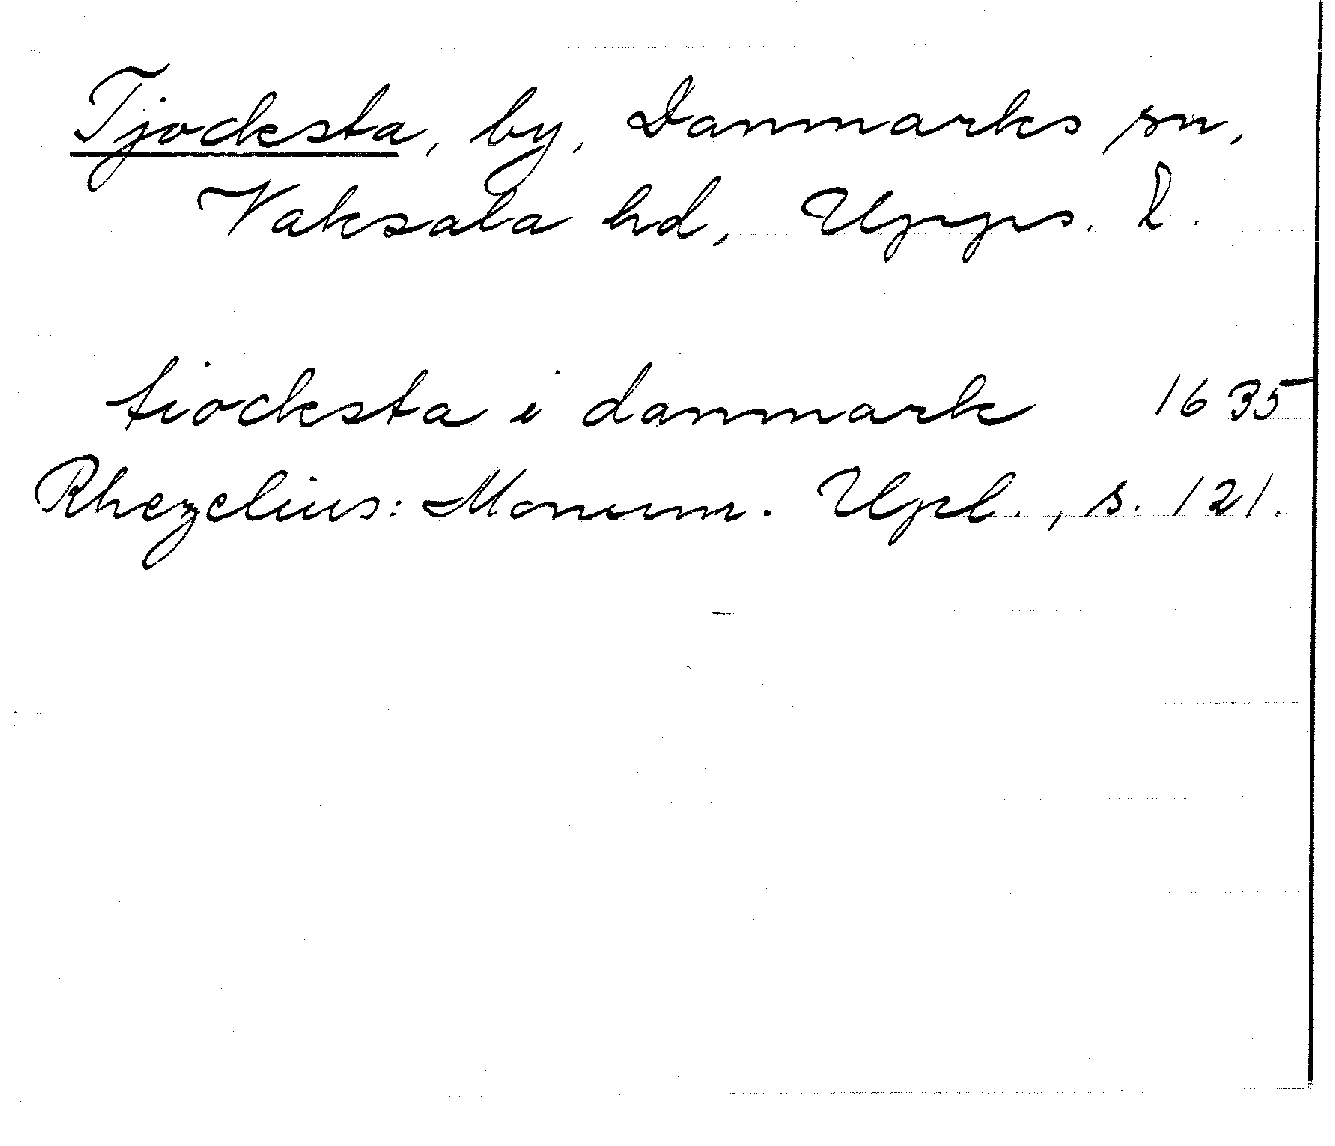 Tjocksta, by, Danmarks sn,
Vaksala hd, Upps. l.
tiocksta i danmark 1635
Rhezelius: Monum. Upl., s. 121.